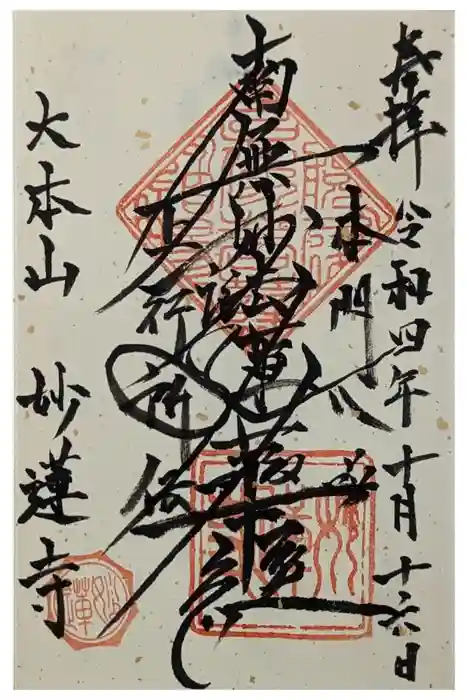 奉拝 令和四年十月十六日
本門八品
南無妙法蓮華経
上行所伝
大本山 妙蓮寺